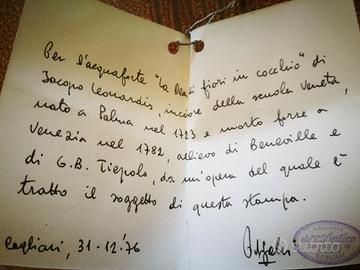 Per l'acquaforte "la Dea di fiori in cocchio" di
Jacopo Leonardis, incisore della scuola Veneta,
nato a Palma nel 1723 e morto forse a
Venezia nel 1782, allievo di Beneville e
di G.B. Tiepolo, da un'opera del quale è
tratto il soggetto di questa stampa.
Cagliari, 31-12-'76
GALLERIA
CAGLIARI